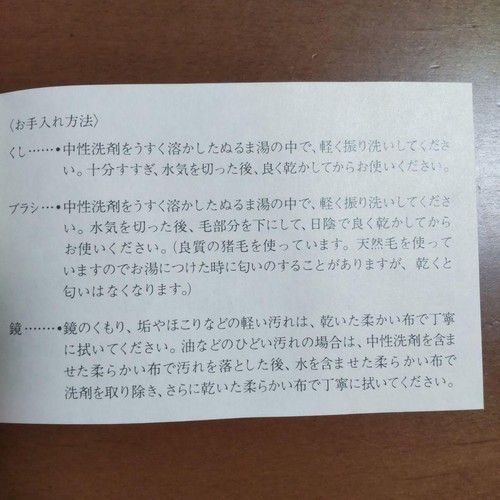 〈お手入れ方法〉
くし……•中性洗剤をうすく溶かしたぬるま湯の中で、軽く振り洗いしてくださ
い。十分すすぎ、水気を切った後、良く乾かしてからお使いください。
ブラシ…•中性洗剤をうすく溶かしたぬるま湯の中で、軽く振り洗いしてくださ
い。水気を切った後、毛部分を下にして、日陰で良く乾かしてから
お使いください。（良質の猪毛を使っています。天然毛を使って
いますのでお湯につけた時に匂いのすることがありますが、乾くと
匂いはなくなります。）
鏡…….•鏡のくもり、垢やほこりなどの軽い汚れは、乾いた柔かい布で丁寧
に拭いてください。油などのひどい汚れの場合は、中性洗剤を含ま
せた柔らかい布で汚れを落とした後、水を含ませた柔らかい布で
洗剤を取り除き、さらに乾いた柔らかい布で丁寧に拭いてください。